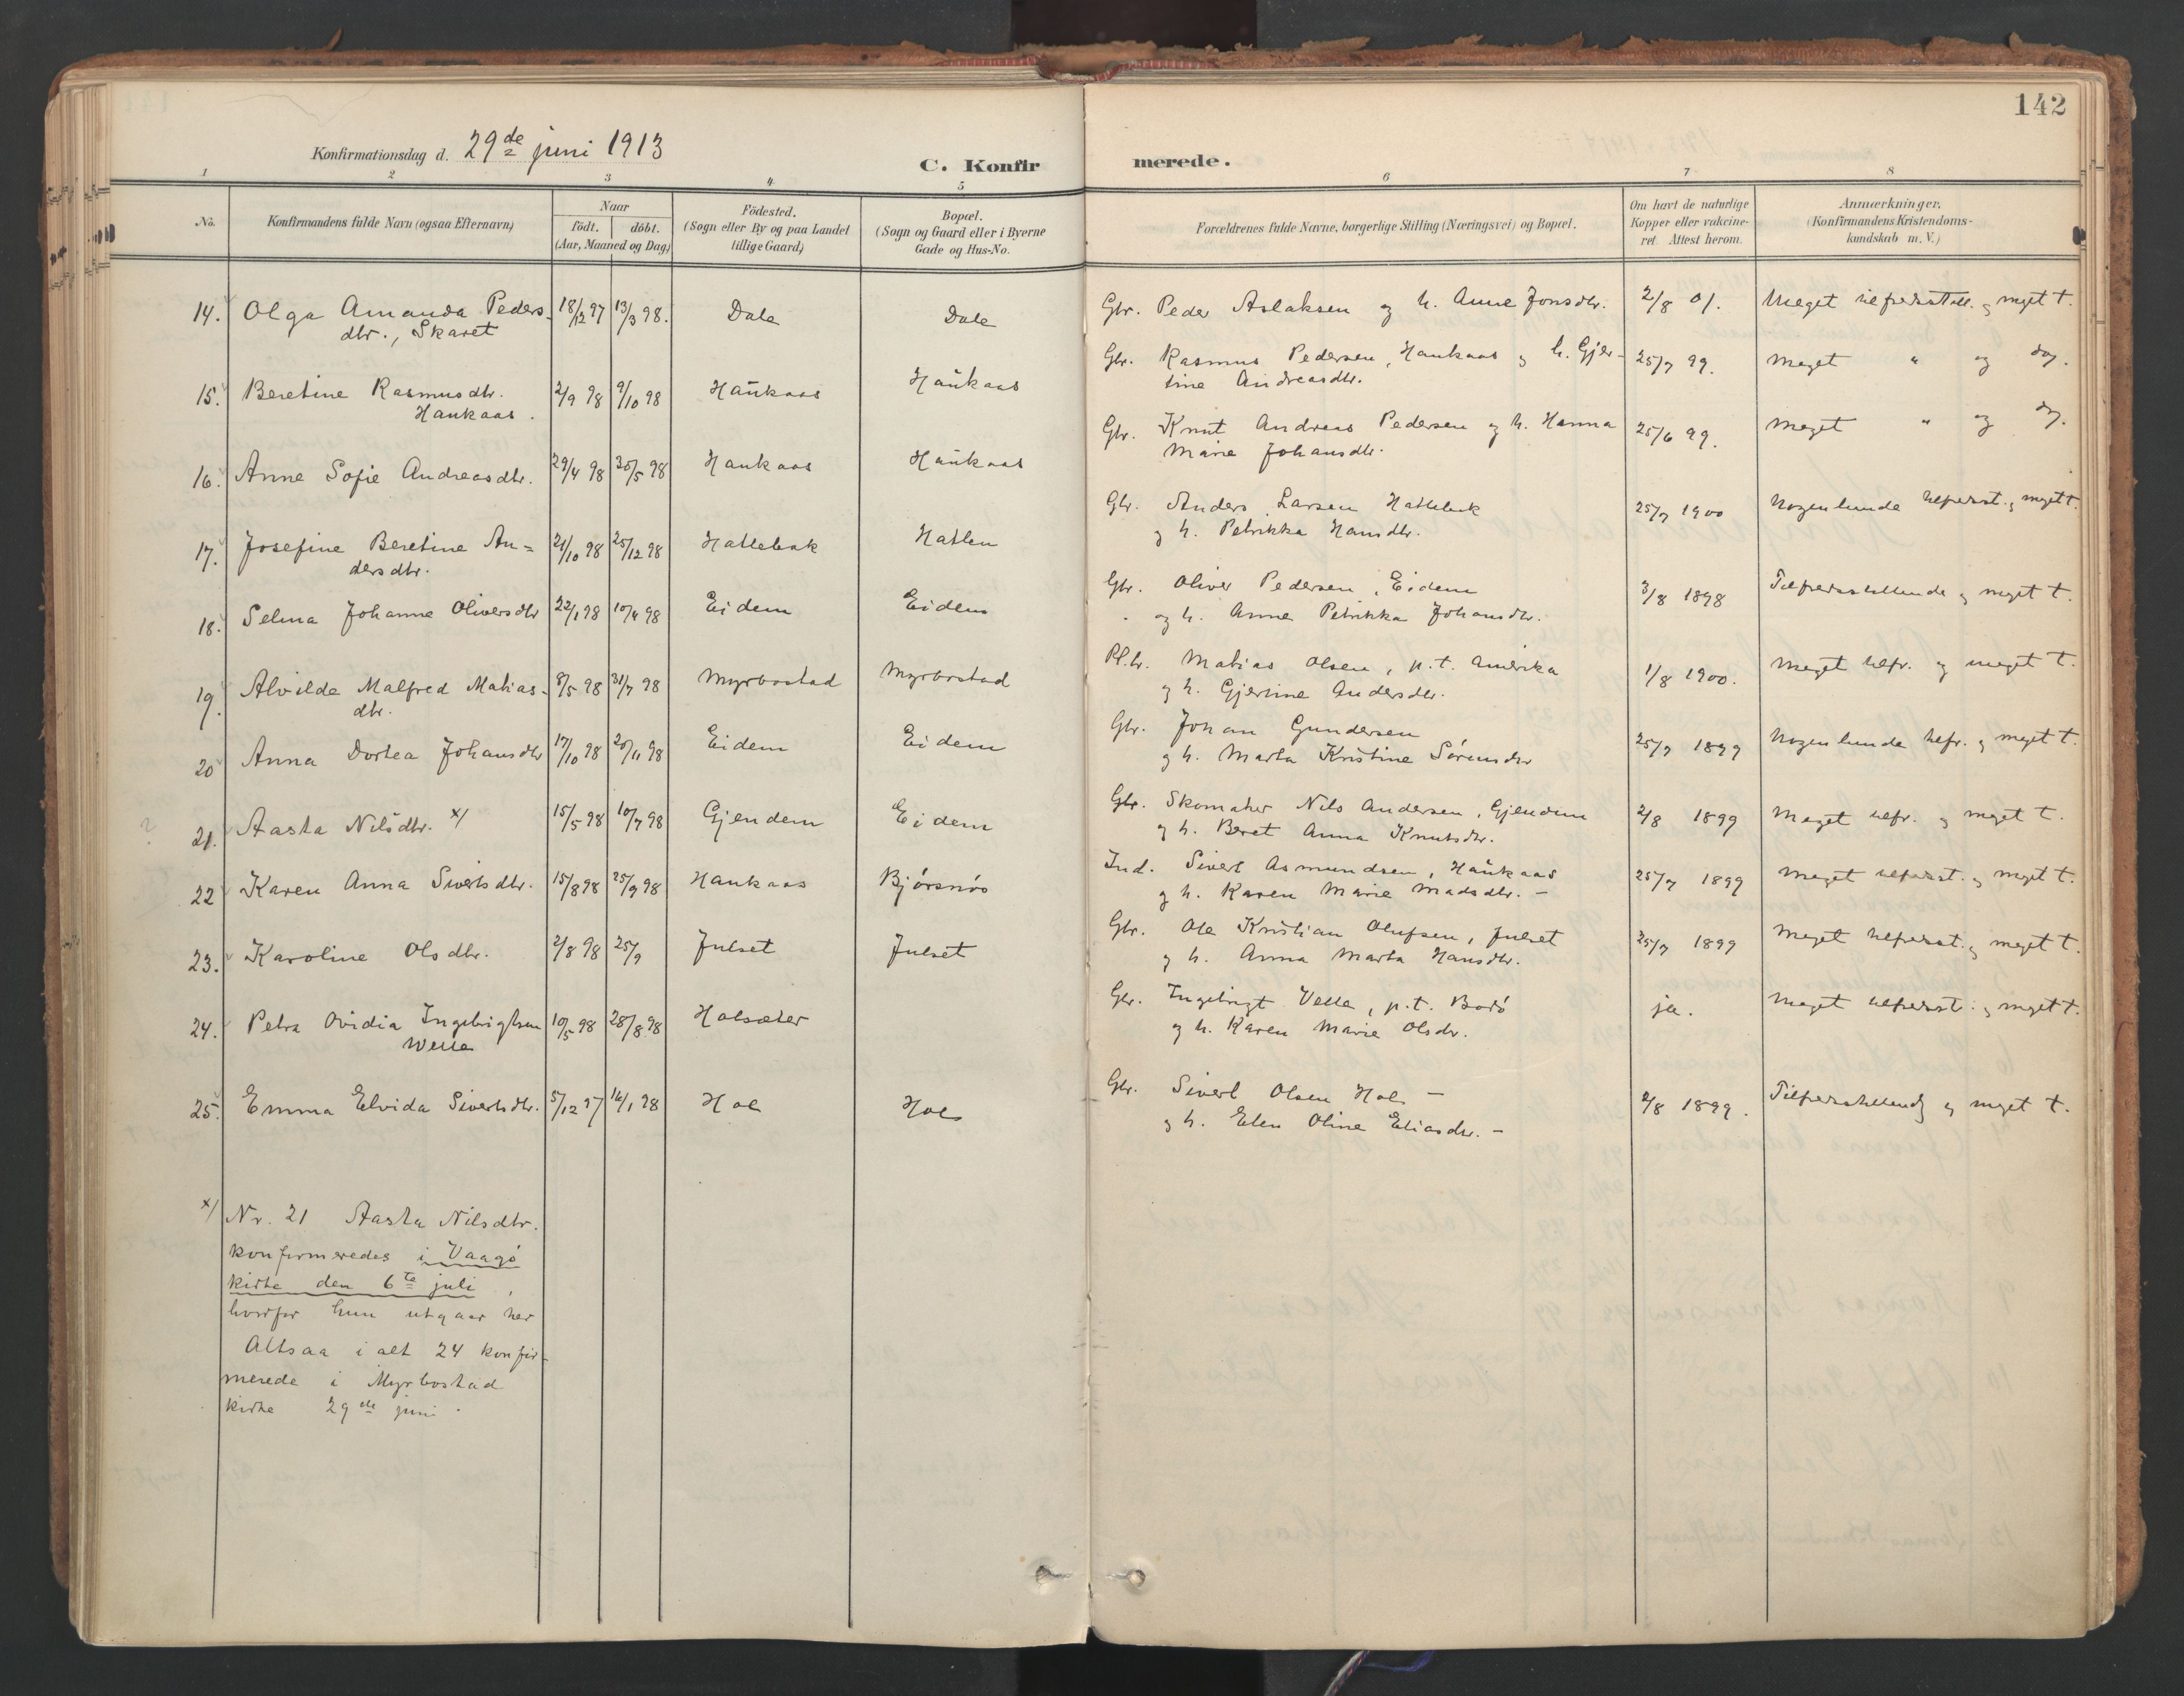 142
Konfirmationsdag d. 29de juni 1913
C. Konfirmerede.
1 2 3 4 5 6 7 8
No.
Konfirmandens fulde Navn (ogsaa Efternavn)
Naar
födt. döbt.
(Aar, Maaned og Dag)
Födested.
(Sogn eller By og paa Landet
tillige Gaard)
Bopæl.
(Sogn og Gaard eller i Byerne
Gade og Hus-No.
Forældrenes fulde Navne, borgerlige Stilling (Næringsvei) og Bopæl.
Om havt de naturlige
Kopper eller vakcine-
ret. Attest herom.
Anmærkninger.
(Konfirmandens Kristendoms-
kundskab m. V.)
14. Olga Amanda Peders- 18/12 97 13/3 98. Dale Dale Gbr. Peder Aslaksen og h. Anne Jonsdtr. 2/8 01. Meget tilfredsstill. og meget t.
dtr., Skaret
15. Beretine Rasmusdtr. 2/9 98 9/10 98 Haukaas Haukaas Gbr. Rasmus Pedersen, Haukaas og h. Gjer- 25/7 99. Meget " og do.
Haukaas. tine Andreasdtr.
16. Anne Sofie Andreasdtr. 29/4 98 30/5 98 Haukaas Haukaas Gbr. Knut Andreas Pedersen og h. Hanna 25/6 99. Meget " og do.
Marie Johansdtr.
17. Josefine Beretine An= 21/10 98 25/12 98 Hatlebak Hatlen Gbr. Anders Larsen Hatlebak 25/7 1900 Nogenlunde tilfredsst. og meget t.
dersdtr. og h. Petrikka Hansdtr.
18. Selma Johanne Oliversdtr 22/1 98 10/4 98 Eidem Eidem Gbr. Oliver Pedersen, Eidem 3/8 1898 Tilfredsstillende og meget t.
og h. Anne Petrikka Johansdtr.
19. Alvilde Malfred Matias- 8/5 98 31/7 98 Myrbostad Myrbostad Pl.br. Matias Olsen, p.t. Amerika 1/8 1900. Meget tilfr. og meget t.
dtr. og h. Gjertine Andersdtr.
20 Anna Dortea Johansdtr 17/10 98 20/11 98 Eidem Eidem Gbr. Johan Gundersen 25/7 1899 Nogenlunde tilfr. og meget t.
og h. Marta Kristine Sörensdtr
21. Aasta Nilsdtr. x/ 15/5 98 10/7 98 Gjendem Eidem Gbr. Skomaker Nils Andersen, Gjendem 2/8 1899 Meget tilfr. og meget t.
og h. Beret Anna Knutsdtr.
22 Karen Anna Sivertsdtr. 15/8 98 25/9 98 Haukaas Bjørsnøs Ind. Sivert Asmundsen, Haukaas 25/7 1899 Meget tilfredsst. og meget t.
og h. Karen Marie Madsdtr. -
23. Karoline Olsdtr. 2/8 98 25/9 Julset Julset Gbr. Ole Kristian Olufsen, Julset 25/7 1899 Meget tilfredsst. og meget t.
og h. Anna Marta Hansdtr.
24. Petra Ovidia Ingebrigtsen 10/5 98 28/8 98 Holsæter Gbr. Ingebrigt Velle, p.t. Bodö ja. Meget tilfredsst. og meget t.
Welle og h. Karen Marie Olsdtr.
25. Emma Elvida Sivertsdtr. 5/12 97 16/1 98 Hol Hol Gbr. Sivert Olsen Hol - 2/8 1899. Tilfredsstillende og meget t.
og h. Elen Oline Eliasdtr. -
x/ Nr. 21 Aasta Nilsdtr.
konfirmeredes i Vaagö
kirke den 6te juli,
hvorfor hun utgaar her
Altsaa i alt 24 konfir-
merede i Myrbostad
kirke 29de juni.